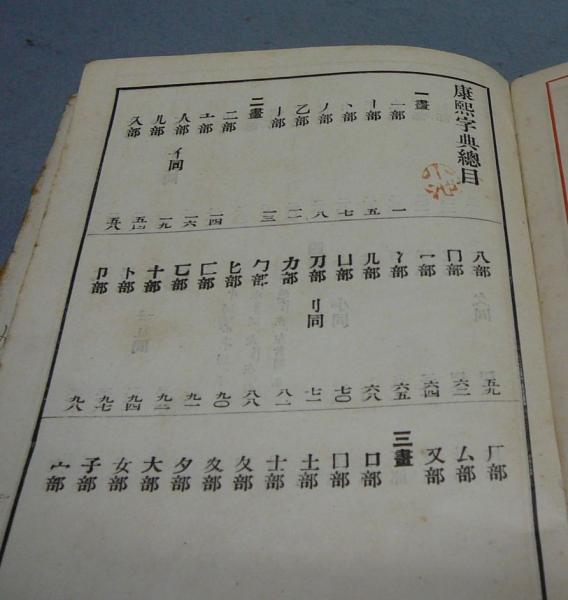 康熙字典總目
一畫
一部 一
丨部 五
丶部 七
丿部 八
乙部 一一
亅部 一三
二畫
二部 一四
亠部 一六
人部 亻同 一九
儿部 五四
入部 五八
八部 五九
冂部 六二
冖部 六四
冫部 六五
几部 六八
凵部 七〇
刀部 刂同 七一
力部 八一
勹部 八八
匕部 九〇
匚部 九一
匸部 九三
十部 九四
卜部 九七
卩部 九八
厂部
厶部
又部
三畫
口部
囗部
土部
士部
夂部
夊部
夕部
大部
女部
子部
宀部